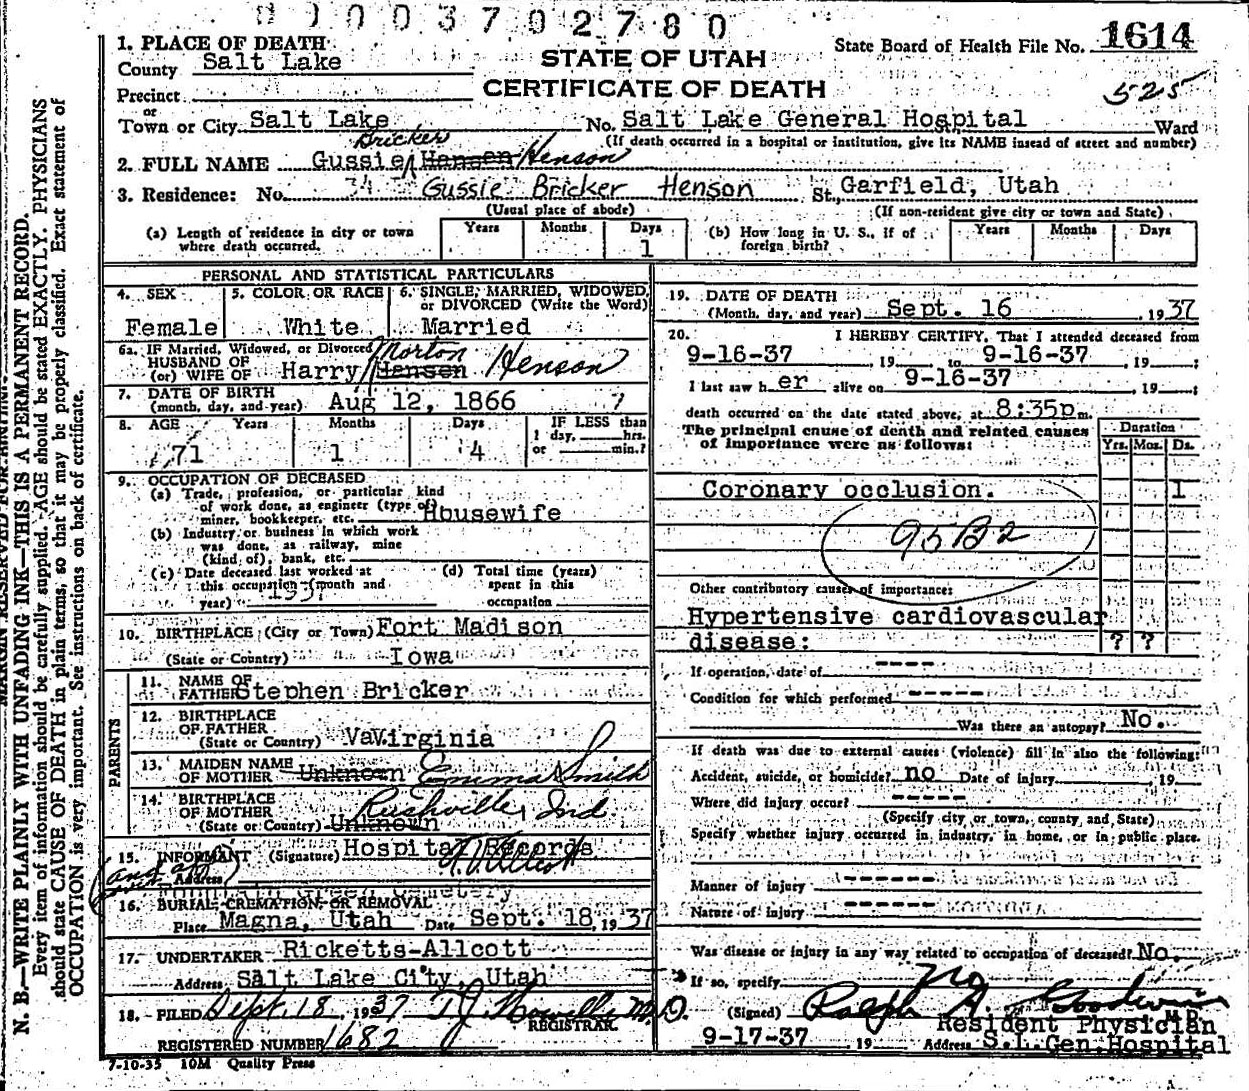 0003702780
1. PLACE OF DEATH
County Salt Lake
STATE OF UTAH
CERTIFICATE OF DEATH
State Board of Health File No. 1614
525
Precinct
or
Town or City Salt Lake No. Salt Lake General Hospital Ward
(If death occurred in a hospital or institution, give its NAME insead of street and number)
2. FULL NAME Gussie Bricker Hansen Henson
3. Residence: No. 34 Gussie Bricker Henson St., Garfield, Utah
(Usual place of abode) (If non-resident give city or town and State)
(a) Length of residence in city or town where death occurred. Years Months Days 1
(b) How long in U. S., if of foreign birth? Years Months Days
PERSONAL AND STATISTICAL PARTICULARS
4. SEX 5. COLOR OR RACE 6. SINGLE, MARRIED, WIDOWED,
or DIVORCED (Write the Word)
Female White Married
6a. IF Married, Widowed, or Divorced
HUSBAND OF
(or) WIFE OF Harry Morton Hansen Henson
7. DATE OF BIRTH
(month, day, and year) Aug 12, 1866 ?
8. AGE Years Months Days IF LESS than
1 day, hrs.
or min.?
71 1 4
9. OCCUPATION OF DECEASED
(a) Trade, profession, or particular kind
of work done, as engineer (type of
miner, bookkeeper, etc. Housewife
(b) Industry or business in which work
was done, as railway, mine
(kind of), bank, etc.
(c) Date deceased last worked at
this occupation (month and
year) 1937
(d) Total time (years)
spent in this
occupation
10. BIRTHPLACE (City or Town) Fort Madison
(State or Country) Iowa
PARENTS
11. NAME OF
FATHER Stephen Bricker
12. BIRTHPLACE
OF FATHER
(State or Country) VaVirginia
13. MAIDEN NAME
OF MOTHER Unknown Emma Smith
14. BIRTHPLACE
OF MOTHER Rushville, Ind.
(State or Country) Unknown
15. INFORMANT (Signature) Hospital Records
Address
Green Cemetery
16. BURIAL, CREMATION, OR REMOVAL
Place Magna, Utah Date Sept. 18, 1937
17. UNDERTAKER Ricketts-Allcott
Address Salt Lake City, Utah
18. FILED Sept. 18, 1937 T.J. Howells M.D.
REGISTRAR.
REGISTERED NUMBER 1682
7-10-35 10M Quality Press
19. DATE OF DEATH
(Month, day, and year) Sept. 16, 1937
20. I HEREBY CERTIFY, That I attended deceased from
9-16-37, 19 to 9-16-37, 19 ;
I last saw her alive on 9-16-37, 19 ;
death occurred on the date stated above, at 8:35p m.
The principal cause of death and related causes
of importance were as follows:
Duration
Yrs. Mos. Ds.
Coronary occlusion. 1
95B2
Other contributory causes of importance:
Hypertensive cardiovascular
disease: ? ?
If operation, date of ----
Condition for which performed -----
Was there an autopsy? No.
If death was due to external causes (violence) fill in also the following:
Accident, suicide, or homicide? no Date of injury 19
Where did injury occur? -----
(Specify city or town, county, and State)
Specify whether injury occurred in industry, in home, or in public place.
Manner of injury ------
Nature of injury ------
Was disease or injury in any way related to occupation of deceased? No.
If so, specify no
(Signed) Ralph A. Goodwin M.D.
Resident Physician
9-17-37 19 Address S.L.Gen.Hospital
MARGIN RESERVED FOR BINDING.
N. B.—WRITE PLAINLY WITH UNFADING INK—THIS IS A PERMANENT RECORD.
Every item of information should be carefully supplied. AGE should be stated EXACTLY. PHYSICIANS
should state CAUSE OF DEATH in plain terms, so that it may be properly classified. Exact statement of
OCCUPATION is very important. See instructions on back of certificate.